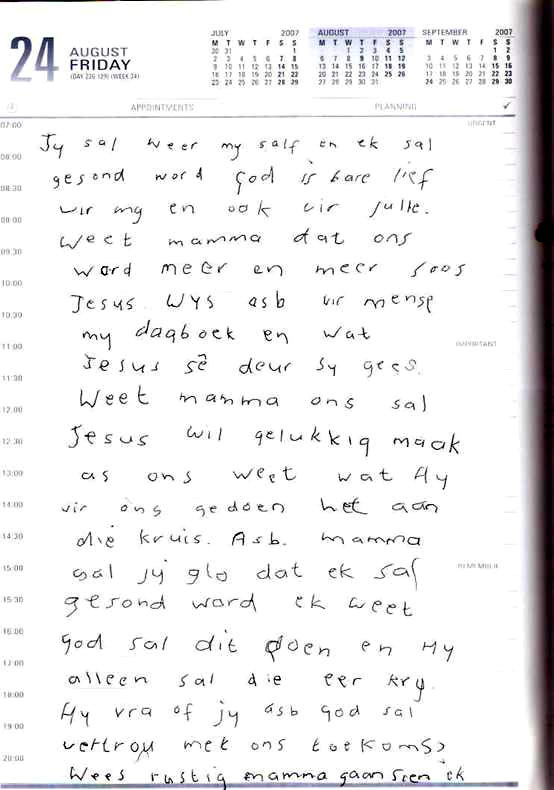 24 AUGUST
FRIDAY
(DAY 236 129) (WEEK 34)
JULY 2007
M T W T F S S
30 31 1
2 3 4 5 6 7 8
9 10 11 12 13 14 15
16 17 18 19 20 21 22
23 24 25 26 27 28 29
AUGUST 2007
M T W T F S S
1 2 3 4 5
6 7 8 9 10 11 12
13 14 15 16 17 18 19
20 21 22 23 24 25 26
27 28 29 30 31
SEPTEMBER 2007
M T W T F S S
1 2
3 4 5 6 7 8 9
10 11 12 13 14 15 16
17 18 19 20 21 22 23
24 25 26 27 28 29 30
APPOINTMENTS PLANNING
URGENT
07:00
Jy sal weer my self en ek sal
08:00
gesond word God is bare lief
08:30
vir my en ook vir julle.
09:00
Weet mamma dat ons
09:30
word meer en meer soos
10:00
Jesus. WYS asb vir mense
10:30
my dagboek en wat
11:00
IMPORTANT
Jesus sê deur sy gees.
11:30
Weet mamma ons sal
12:00
Jesus wil gelukkig maak
12:30
as ons weet wat Hy
13:00
vir ons gedoen het aan
14:00
die kruis. Asb. mamma
14:30
sal jy glo dat ek sal
15:00
REMEMBER
gesond word ek weet
15:30
God sal dit doen en Hy
16:00
alleen sal die eer kry.
17:00
Hy vra of jy asb God sal
18:00
vertrou met ons toekoms?
19:00
Wees rustig mamma gaan sien ek
20:00